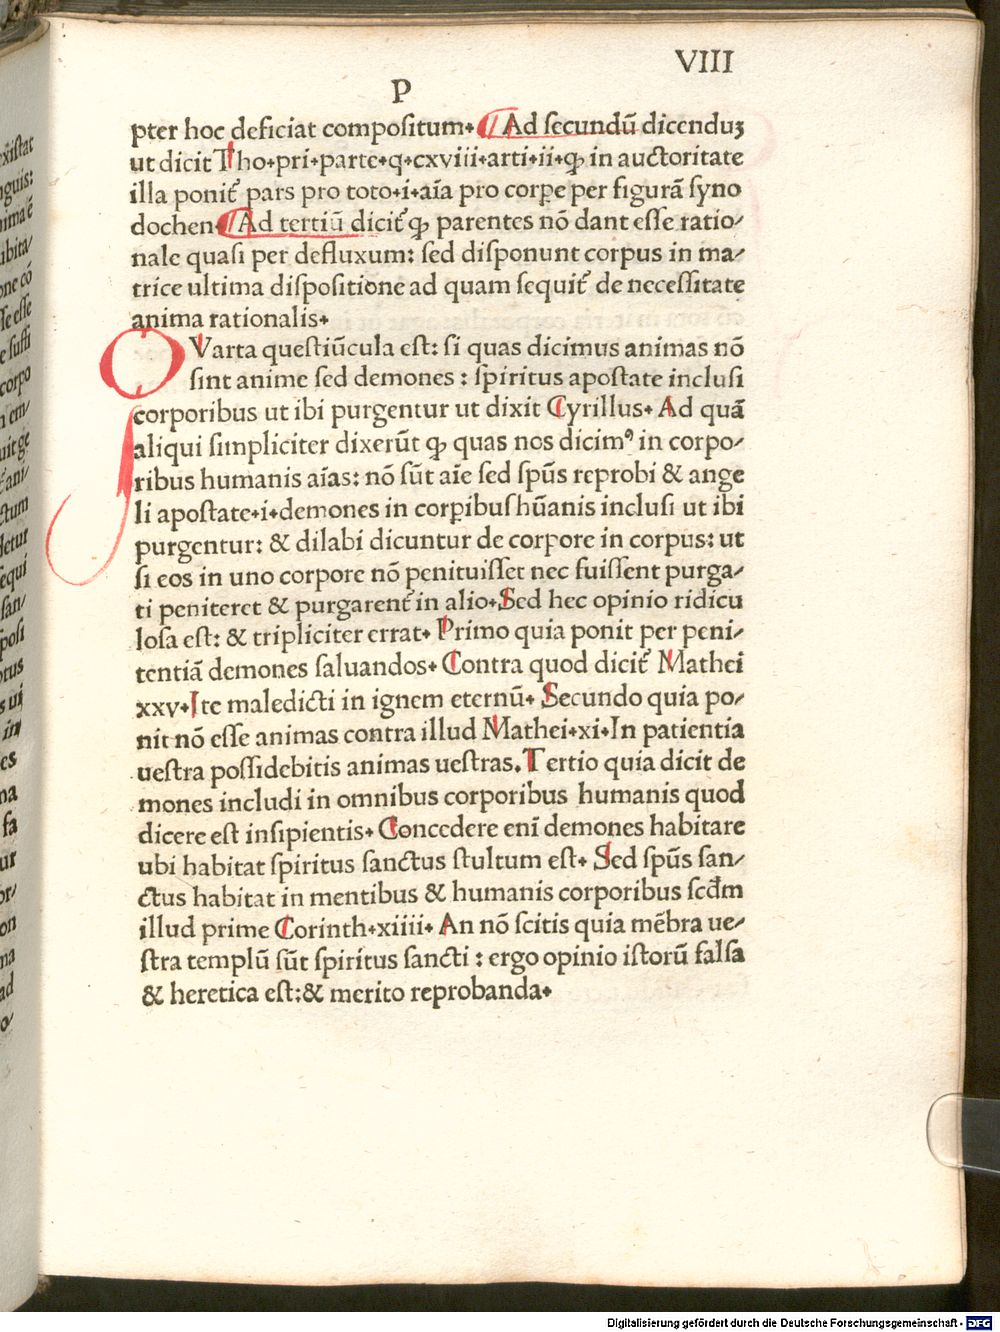 VIII
P
pter hoc deficiat compositum. ¶ Ad secundū dicenduꝫ
ut dicit Tho.pri.parte.q.cxviii.arti.ii.ꝙ in auctoritate
illa ponit᷑ pars pro toto.i.aīa pro corpe per figurā syno
dochen. ¶ Ad tertiū dicit᷑ ꝙ parentes nō dant esse ratio-
nale quasi per defluxum: sed disponunt corpus in ma-
trice ultima dispositione ad quam sequit᷑ de necessitate
anima rationalis.
QVarta questiūcula est: si quas dicimus animas nō
sint anime sed demones : spiritus apostate inclusi
corporibus ut ibi purgentur ut dixit Cyrillus. Ad quā
aliqui simpliciter dixerūt ꝙ quas nos dicimꝰ in corpo-
ribus humanis aīas: nō sūt aīe sed spūs reprobi & ange
li apostate.i.demones in corpibus hūanis inclusi ut ibi
purgentur: & dilabi dicuntur de corpore in corpus: ut
si eos in uno corpore nō penituisset nec fuissent purga-
ti peniteret & purgarent᷑ in alio. Sed hec opinio ridicu
losa est: & tripliciter errat. Primo quia ponit per peni-
tentiā demones saluandos. Contra quod dicit᷑ Mathei
xxv. Ite maledicti in ignem eternū. Secundo quia po-
nit nō esse animas contra illud Mathei.xi.In patientia
uestra possidebitis animas uestras. Tertio quia dicit de
mones includi in omnibus corporibus humanis quod
dicere est insipientis. Concedere enī demones habitare
ubi habitat spiritus sanctus stultum est. Sed spūs san-
ctus habitat in mentibus & humanis corporibus scđm
illud prime Corinth.xiiii. An nō scitis quia mēbra ue-
stra templū sūt spiritus sancti : ergo opinio istorū falsa
& heretica est:& merito reprobanda.
Digitalisierung gefördert durch die Deutsche Forschungsgemeinschaft - DFG